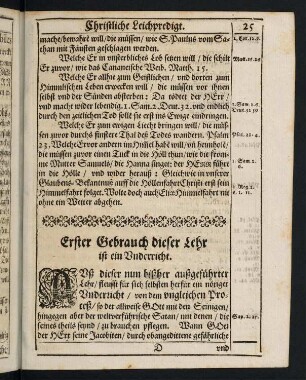 Christliche Leichpredigt. 25
macht/bewahrt will/die müssen/ wie S. Paulus vom Sa-
than mit Fäusten geschlagen werden.
Welche Er in unsterblichem Lob seyen will / die schilt
Er zuvor/ wie das Cananeische Weib. Matth. 15.
Welche Er allhie zum Geistlichen / und dorten zum
Himmlischen Leben erwecken will / die müssen vor ihnen
selbst und der Sünden absterben: Da tödtet der HErr/
und macht wider lebendig. 1. Sam. 2. Deut. 32. und endlich
durch den zeitlichen Tod solle sie erst ins Ewige eindringen.
Welche Er zum ewigen Liecht bringen will / die müs-
sen zuvor durchs finster Thal deß Todes wandern. Psalm
23. Welche Er vor andern im Himmel haben will
die müssen zuvor einen in die Höll thun/wie die from-
me Mutter Samuels/ die Hanna singet: der HErr führt
in die Hölle / und wider herauß: Gleichwie in unserer
Glaubens-Bekantnus auf die Höllenfahrt Christi erst sein
Himmelfahrt folget. Wolte doch auch Elias Himmelfahrt nit
ohne ein Wetter abgehen.
Erster Gebrauch dieser Lehr
ist ein Underricht.
Auß dieser nun bißher außgeführter
Lehr/ fleußt für sich selbsten herfür ein nötiger
Underricht / von dem ungleichen Pro-
ceß/ so der allweise GOtt mit den Seinigen/
hingegen aber der weltverführische Satan/ mit denen / die
seines theils seynd/ zu brauchen pflegen. Wann GOtt
der HErr seine Jacobiten/ durch obangedittene gefährliche
D und
2. Cor. 12. 7.
Matt. 15. 26
1. Sam. 2. 6
Deut. 32. 39
Psal. 23. 4.
1. Sam. 2.
6.
2. Reg. 2.
v. 1. 11.